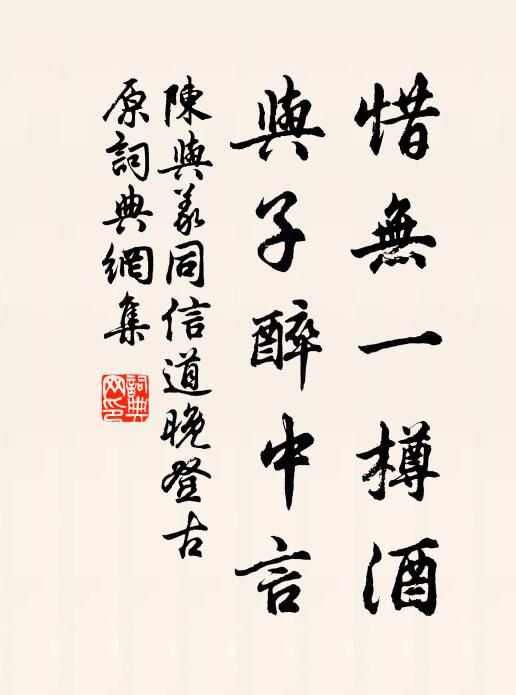 惜無一樽酒
與子醉中言
陳與義同信道晚登古
原詞典網集
詞典
网印